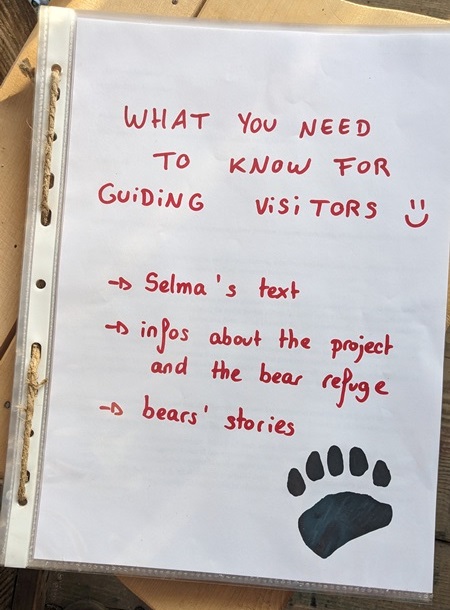 WHAT YOU NEED
TO KNOW FOR
GUiDiNG ViSiTORS
→ Selma's text
→ infos about the project
and the bear refuge
→ bears' stories